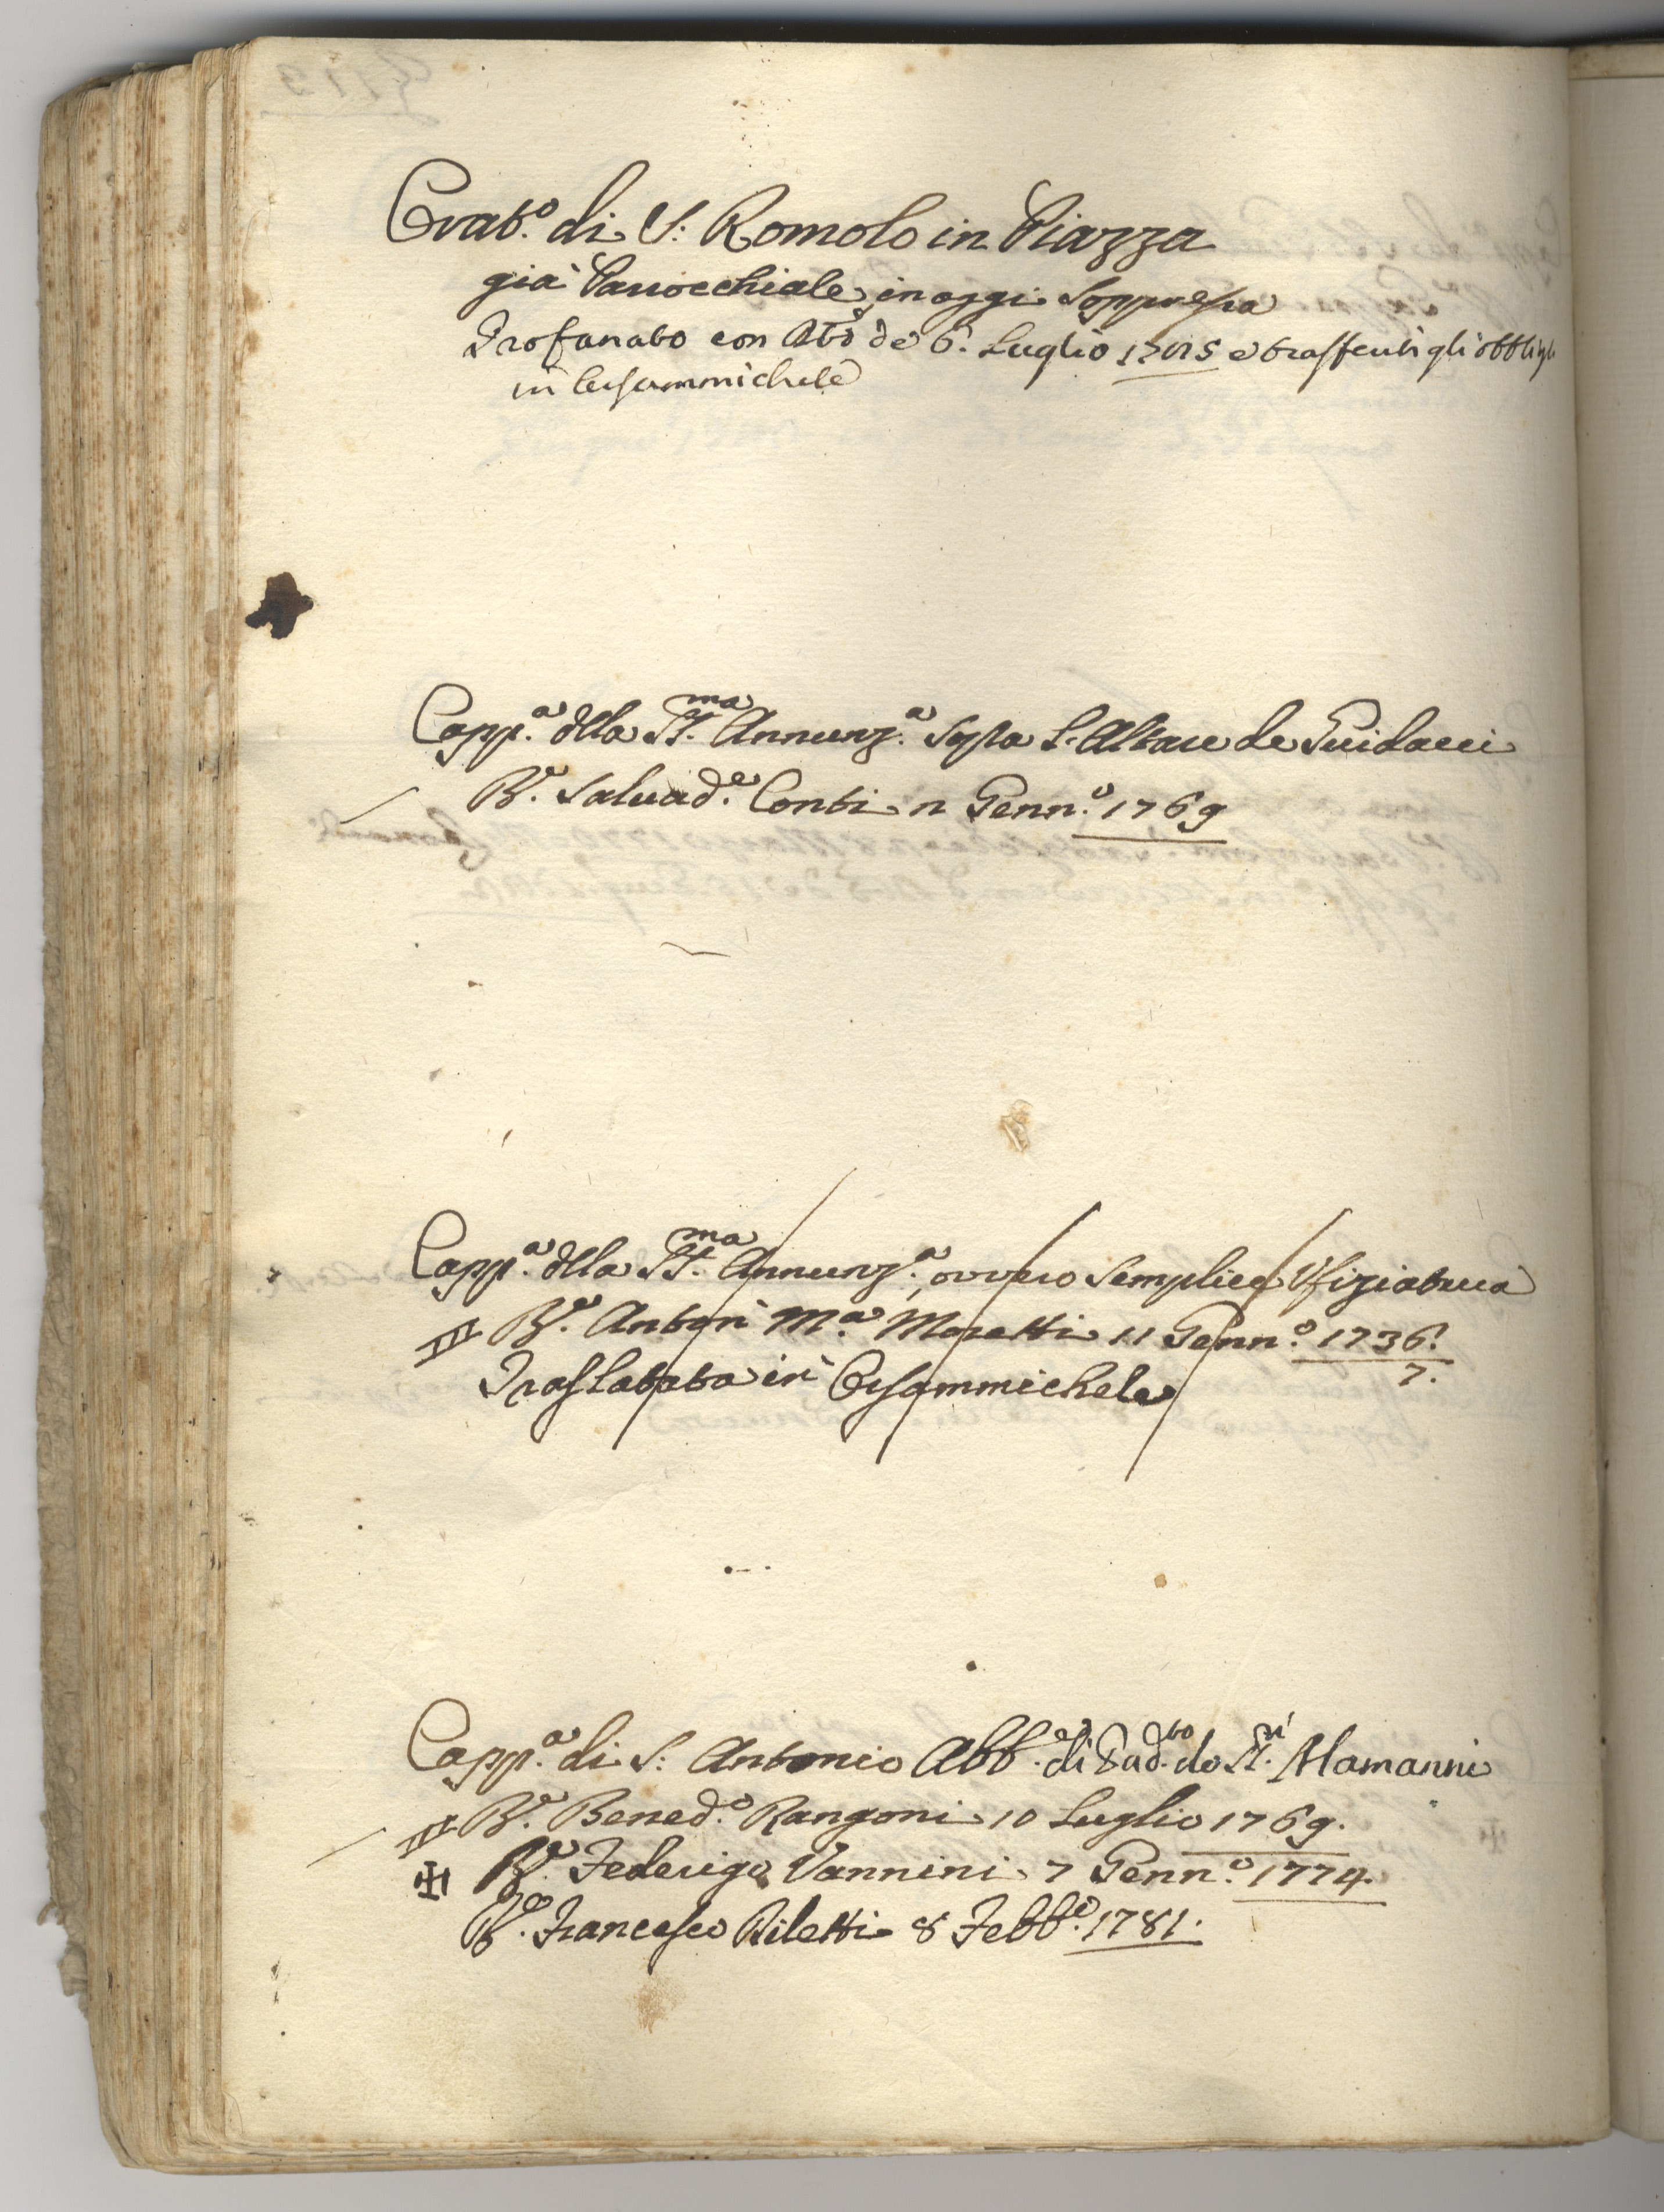 Orat.o di S: Romolo in Piazza
già Parrocchiale, in oggi Soppressa
Profanato con Atto de 6. Luglio e trasferiti gli obblighi
in Orsammichele
Capp.a della SS.ma Annunz.a Sotto L'Altare de Guidacci
R.e Salvad.e Conti 2 Genn.o 1769
Capp.a della SS.ma Annunz.a, ovvero Semplice Ufiziatura
R.e Anton M.a Mozetti 11 Genn.o 1736.
7.
Traslatata in Orsammichele
Capp.a di S: Antonio Abb.e di Pad.to de SS.ri Alamanni
R.e Bened.o Rangoni 10 Luglio 1769.
R.e Federigo Vannini 7 Genn.o 1774.
R.e Francesco Piletti 8 Febb.o 1781.